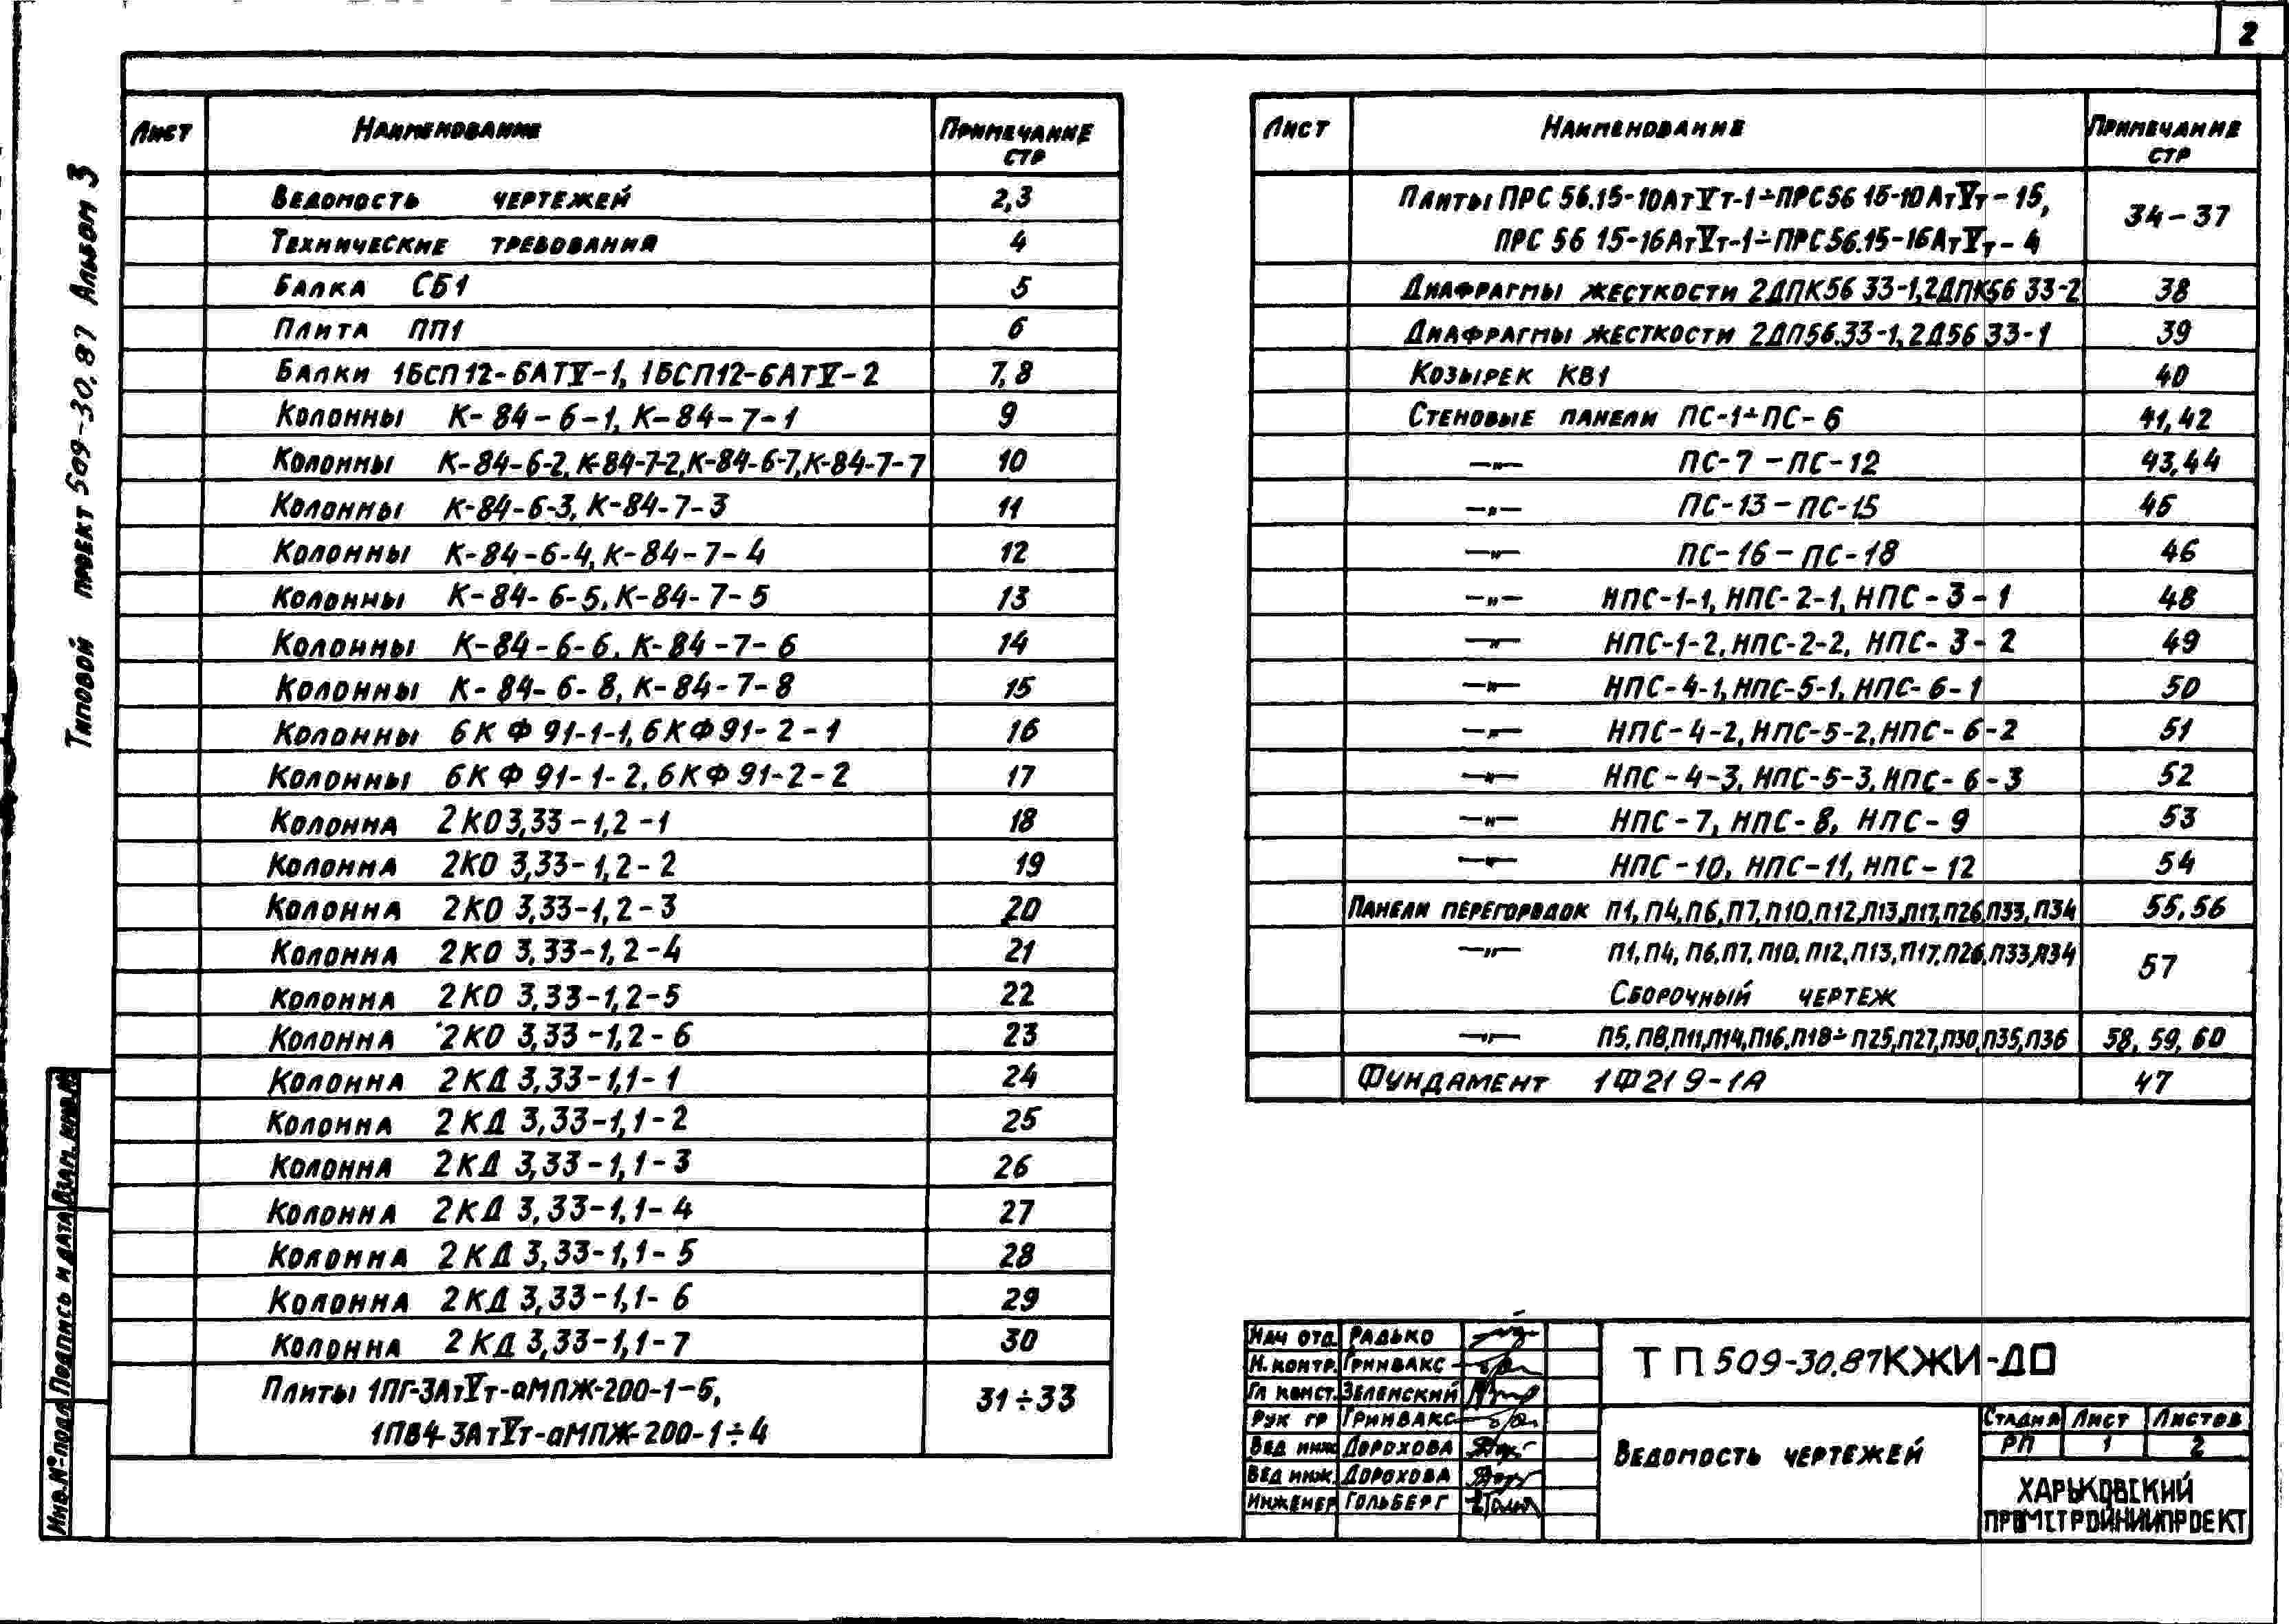 2
Типовой проект 509-30.87 Альбом 3
Лист Наименование Примечание стр
Ведомость чертежей 2,3
Технические требования 4
Балка СБ1 5
Плита ПП1 6
Балки 1БСП12-6АТV-1, 1БСП12-6АТV-2 7,8
Колонны К-84-6-1, К-84-7-1 9
Колонны К-84-6-2, К-84-7-2, К-84-6-7, К-84-7-7 10
Колонны К-84-6-3, К-84-7-3 11
Колонны К-84-6-4, К-84-7-4 12
Колонны К-84-6-5, К-84-7-5 13
Колонны К-84-6-6, К-84-7-6 14
Колонны К-84-6-8, К-84-7-8 15
Колонны 6КФ91-1-1, 6КФ91-2-1 16
Колонны 6КФ91-1-2, 6КФ91-2-2 17
Колонна 2КО3,33-1,2-1 18
Колонна 2КО 3,33-1,2-2 19
Колонна 2КО 3,33-1,2-3 20
Колонна 2КО 3,33-1,2-4 21
Колонна 2КО 3,33-1,2-5 22
Колонна 2КО 3,33-1,2-6 23
Колонна 2КД 3,33-1,1-1 24
Колонна 2КД 3,33-1,1-2 25
Колонна 2КД 3,33-1,1-3 26
Колонна 2КД 3,33-1,1-4 27
Колонна 2КД 3,33-1,1-5 28
Колонна 2КД 3,33-1,1-6 29
Колонна 2КД 3,33-1,1-7 30
Плиты 1ПГ-3АтVт-аМПЖ-200-1-5, 31÷33
1ПВ4-3АтVт-аМПЖ-200-1÷4
Лист Наименование Примечание стр
Плиты ПРС 56.15-10АтVт-1÷ПРС56 15-10АтVт-15, 34-37
ПРС 56 15-16АтVт-1÷ПРС56.15-16АтVт-4
Диафрагмы жесткости 2ДПК56 33-1, 2ДПК56 33-2 38
Диафрагмы жесткости 2ДП56.33-1, 2Д56 33-1 39
Козырек КВ1 40
Стеновые панели ПС-1÷ПС-6 41,42
—"— ПС-7-ПС-12 43,44
—"— ПС-13-ПС-15 45
—"— ПС-16-ПС-18 46
—"— НПС-1-1, НПС-2-1, НПС-3-1 48
—"— НПС-1-2, НПС-2-2, НПС-3-2 49
—"— НПС-4-1, НПС-5-1, НПС-6-1 50
—"— НПС-4-2, НПС-5-2, НПС-6-2 51
—"— НПС-4-3, НПС-5-3, НПС-6-3 52
—"— НПС-7, НПС-8, НПС-9 53
—"— НПС-10, НПС-11, НПС-12 54
Панели перегородок П1, П4, П6, П7, П10, П12, П13, П17, П26, П33, П34 55,56
—"— П1, П4, П6, П7, П10, П12, П13, П17, П26, П33, П34 57
Сборочный чертеж
—"— П5, П8, П11, П14, П16, П18÷П25, П27, П30, П35, П36 58, 59, 60
Фундамент 1Ф21 9-1А 47
Нач отд. Радько
Н. контр. Гринвакс
Гл конст. Зеленский
Рук гр Гринвакс
Вед инж Дорохова
Вед инж. Дорохова
Инженер Гольберг
ТП 509-30.87КЖИ-ДО
Ведомость чертежей
Стадия Лист Листов
РП 1 2
ХАРЬКОВСКИЙ
ПРОМСТРОЙНИИПРОЕКТ
Инв.№ подл Подпись и дата Взам. инв.№